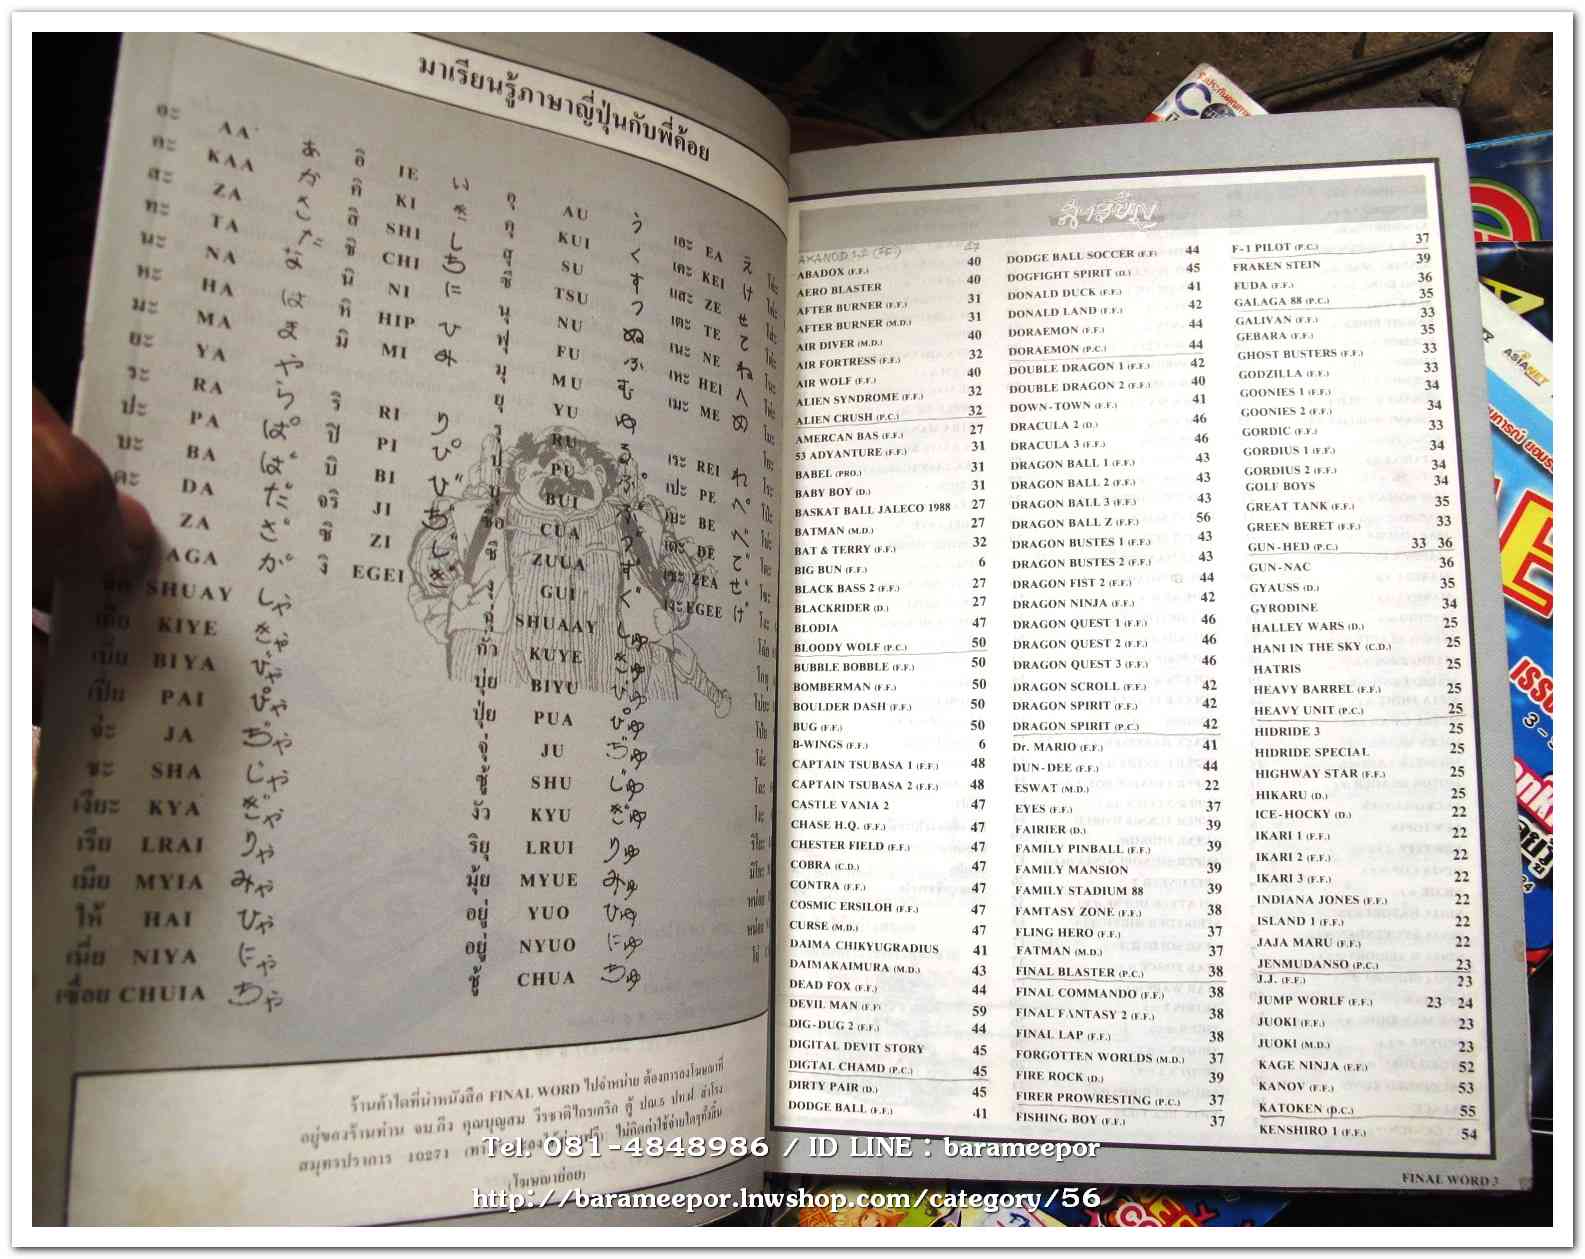 มาเรียนรู้ภาษาญี่ปุ่นกับพี่ค้อย
อะ AA あ อิ IE い อุ AU う เอะ EA え
คะ KAA か คิ KI き คุ KUI く เคะ KEI け
สะ ZA さ สิ SHI し สุ SU す และ ZE せ
ทะ TA た ชิ CHI ち ซึ TSU つ เตะ TE て
นะ NA な นิ NI に นุ NU ぬ เนะ NE ね
หะ HA は หิ HIP ひ ฟุ FU ふ เหะ HEI へ
มะ MA ま มิ MI み มุ MU む เมะ ME め
ยะ YA や ยุ YU ゆ
ระ RA ら ริ RI り RU る เระ REI れ
ปะ PA ぱ ปิ PI ぴ ปุ PU ぷ เปะ PE ぺ
บะ BA ば บิ BI び บุ BUI ぶ เบะ BE べ
ดะ DA だ จริ JI ぢ ซือ CUA づ เดะ DE で
ZA ざ ซิ ZI じ ซิ ZUUA ず ZEA ぜ
AGA が งิ EGEI ぎ ง GUI ぐ EGEE げ
SHUAY しゃ SHUAAY しゅ
KIYE きゃ กัว KUYE きゅ
BIYA びゃ บุ่ย BIYU びゅ
เปีย PAI ぴゃ ปุ่ย PUA ぴゅ
จ่ะ JA ぢゃ จุ่ JU ぢゅ
ซะ SHA じゃ ซู้ SHU じゅ
เงียะ KYA ぎゃ งัว KYU ぎゅ
เรีย LRAI りゃ ริยุ LRUI りゅ
เมีย MYIA みゃ มุ้ย MYUE みゅ
ให้ HAI ひゃ อยู่ YUO ひゅ
เนี่ย NIYA にゃ อยู่ NYUO にゅ
เชื่อย CHUIA ちゃ ชู้ CHUA ちゅ
ร้านค้าใดที่นำหนังสือ FINAL WORD ไปจำหน่าย ต้องการลงโฆษณาที่
อยู่ของร้านท่าน จม.ถึง คุณบุญสม วีรชาติไกรเกริก ตู้ ปณ.5 ปท.ฝ. สำโรง
สมุทรปราการ 10271 ไม่คิดค่าใช้จ่ายใดๆทั้งสิ้น
(โฆษณาย่อย)
สารบัญ
AXANOID 1-2 (F.F.) 47
ABADOX (F.F.) 40
AERO BLASTER 40
AFTER BURNER (F.F.) 31
AFTER BURNER (M.D.) 31
AIR DIVER (M.D.) 40
AIR FORTRESS (F.F.) 32
AIR WOLF (F.F.) 40
ALIEN SYNDROME (F.F.) 32
ALIEN CRUSH (P.C.) 32
AMERCAN BAS (F.F.) 27
53 ADYANTURE (F.F.) 31
BABEL (PRO.) 31
BABY BOY (D.) 31
BASKAT BALL JALECO 1988 27
BATMAN (M.D.) 27
BAT & TERRY (F.F.) 32
BIG BUN (F.F.) 6
BLACK BASS 2 (F.F.) 27
BLACKRIDER (D.) 27
BLODIA 47
BLOODY WOLF (P.C.) 50
BUBBLE BOBBLE (F.F.) 50
BOMBERMAN (F.F.) 50
BOULDER DASH (F.F.) 50
BUG (F.F.) 50
B-WINGS (F.F.) 6
CAPTAIN TSUBASA 1 (F.F.) 48
CAPTAIN TSUBASA 2 (F.F.) 48
CASTLE VANIA 2 47
CHASE H.Q. (F.F.) 47
CHESTER FIELD (F.F.) 47
COBRA (C.D.) 47
CONTRA (F.F.) 47
COSMIC ERSILOH (F.F.) 47
CURSE (M.D.) 47
DAIMA CHIKYUGRADIUS 41
DAIMAKAIMURA (M.D.) 43
DEAD FOX (F.F.) 44
DEVIL MAN (F.F) 59
DIG-DUG 2 (F.F.) 44
DIGITAL DEVIT STORY 45
DIGTAL CHAMD (P.C.) 45
DIRTY PAIR (D.) 45
DODGE BALL (F.F.) 41
DODGE BALL SOCCER (F.F) 44
DOGFIGHT SPIRIT (D.) 45
DONALD DUCK (F.F.) 41
DONALD LAND (F.F.) 42
DORAEMON (F.F.) 44
DORAEMON (P.C.) 44
DOUBLE DRAGON 1 (F.F.) 42
DOUBLE DRAGON 2 (F.F.) 40
DOWN-TOWN (F.F.) 41
DRACULA 2 (D.) 46
DRACULA 3 (F.F.) 46
DRAGON BALL 1 (F.F.) 43
DRAGON BALL 2 (F.F.) 43
DRAGON BALL 3 (F.F.) 43
DRAGON BALL Z (F.F.) 56
DRAGON BUSTES 1 (F.F.) 43
DRAGON BUSTES 2 (F.F.) 43
DRAGON FIST 2 (F.F.) 44
DRAGON NINJA (F.F.) 42
DRAGON QUEST 1 (F.F.) 46
DRAGON QUEST 2 (F.F.) 46
DRAGON QUEST 3 (F.F.) 46
DRAGON SCROLL (F.F.) 42
DRAGON SPIRIT (F.F.) 42
DRAGON SPIRIT (P.C.) 42
Dr. MARIO (F.F.) 41
DUN-DEE (F.F.) 44
ESWAT (M.D.) 22
EYES (F.F.) 37
FAIRIER (D.) 39
FAMILY PINBALL (F.F.) 39
FAMILY MANSION 39
FAMILY STADIUM 88 39
FAMTASY ZONE (F.F.) 38
FLING HERO (F.F.) 37
FATMAN (M.D.) 37
FINAL BLASTER (P.C.) 38
FINAL COMMANDO (F.F.) 38
FINAL FANTASY 2 (F.F.) 38
FINAL LAP (F.F.) 38
FORGOTTEN WORLDS (M.D.) 37
FIRE ROCK (D.) 39
FIRER PROWRESTING (P.C.) 37
FISHING BOY (F.F.) 37
F-1 PILOT (P.C.) 37
FRAKEN STEIN 39
FUDA (F.F.) 36
GALAGA 88 (P.C.) 35
GALIVAN (F.F.) 33
GEBARA (F.F.) 35
GHOST BUSTERS (F.F.) 33
GODZILLA (F.F.) 33
GOONIES 1 (F.F.) 34
GOONIES 2 (F.F.) 34
GORDIC (F.F.) 33
GORDIUS 1 (F.F.) 34
GORDIUS 2 (F.F.) 34
GOLF BOYS 34
GREAT TANK (F.F.) 35
GREEN BERET (F.F.) 33
GUN-HED (P.C.) 33 36
GUN-NAC 36
GYAUSS (D.) 35
GYRODINE 34
HALLEY WARS (D.) 25
HANI IN THE SKY (C.D.) 25
HATRIS 25
HEAVY BARREL (F.F.) 25
HEAVY UNIT (P.C.) 25
HIDRIDE 3 25
HIDRIDE SPECIAL 25
HIGHWAY STAR (F.F.) 25
HIKARU (D.) 25
ICE-HOCKY (D.) 22
IKARI 1 (F.F.) 22
IKARI 2 (F.F.) 22
IKARI 3 (F.F.) 22
INDIANA JONES (F.F.) 22
ISLAND 1 (F.F.) 22
JAJA MARU (F.F.) 22
JENMUDANSO (P.C.) 23
J.J. (F.F.) 23
JUMP WORLF (F.F.) 23 24
JUOKI (F.F.) 23
JUOKI (M.D.) 23
KAGE NINJA (F.F.) 52
KANOV (F.F.) 53
KATOKEN (D.C.) 55
KENSHIRO 1 (F.F.) 54
FINAL WORD 3
ASIANET
Tel. 081-4848986 / ID LINE : barameepor
http://barameepor.lnwshop.com/category/56